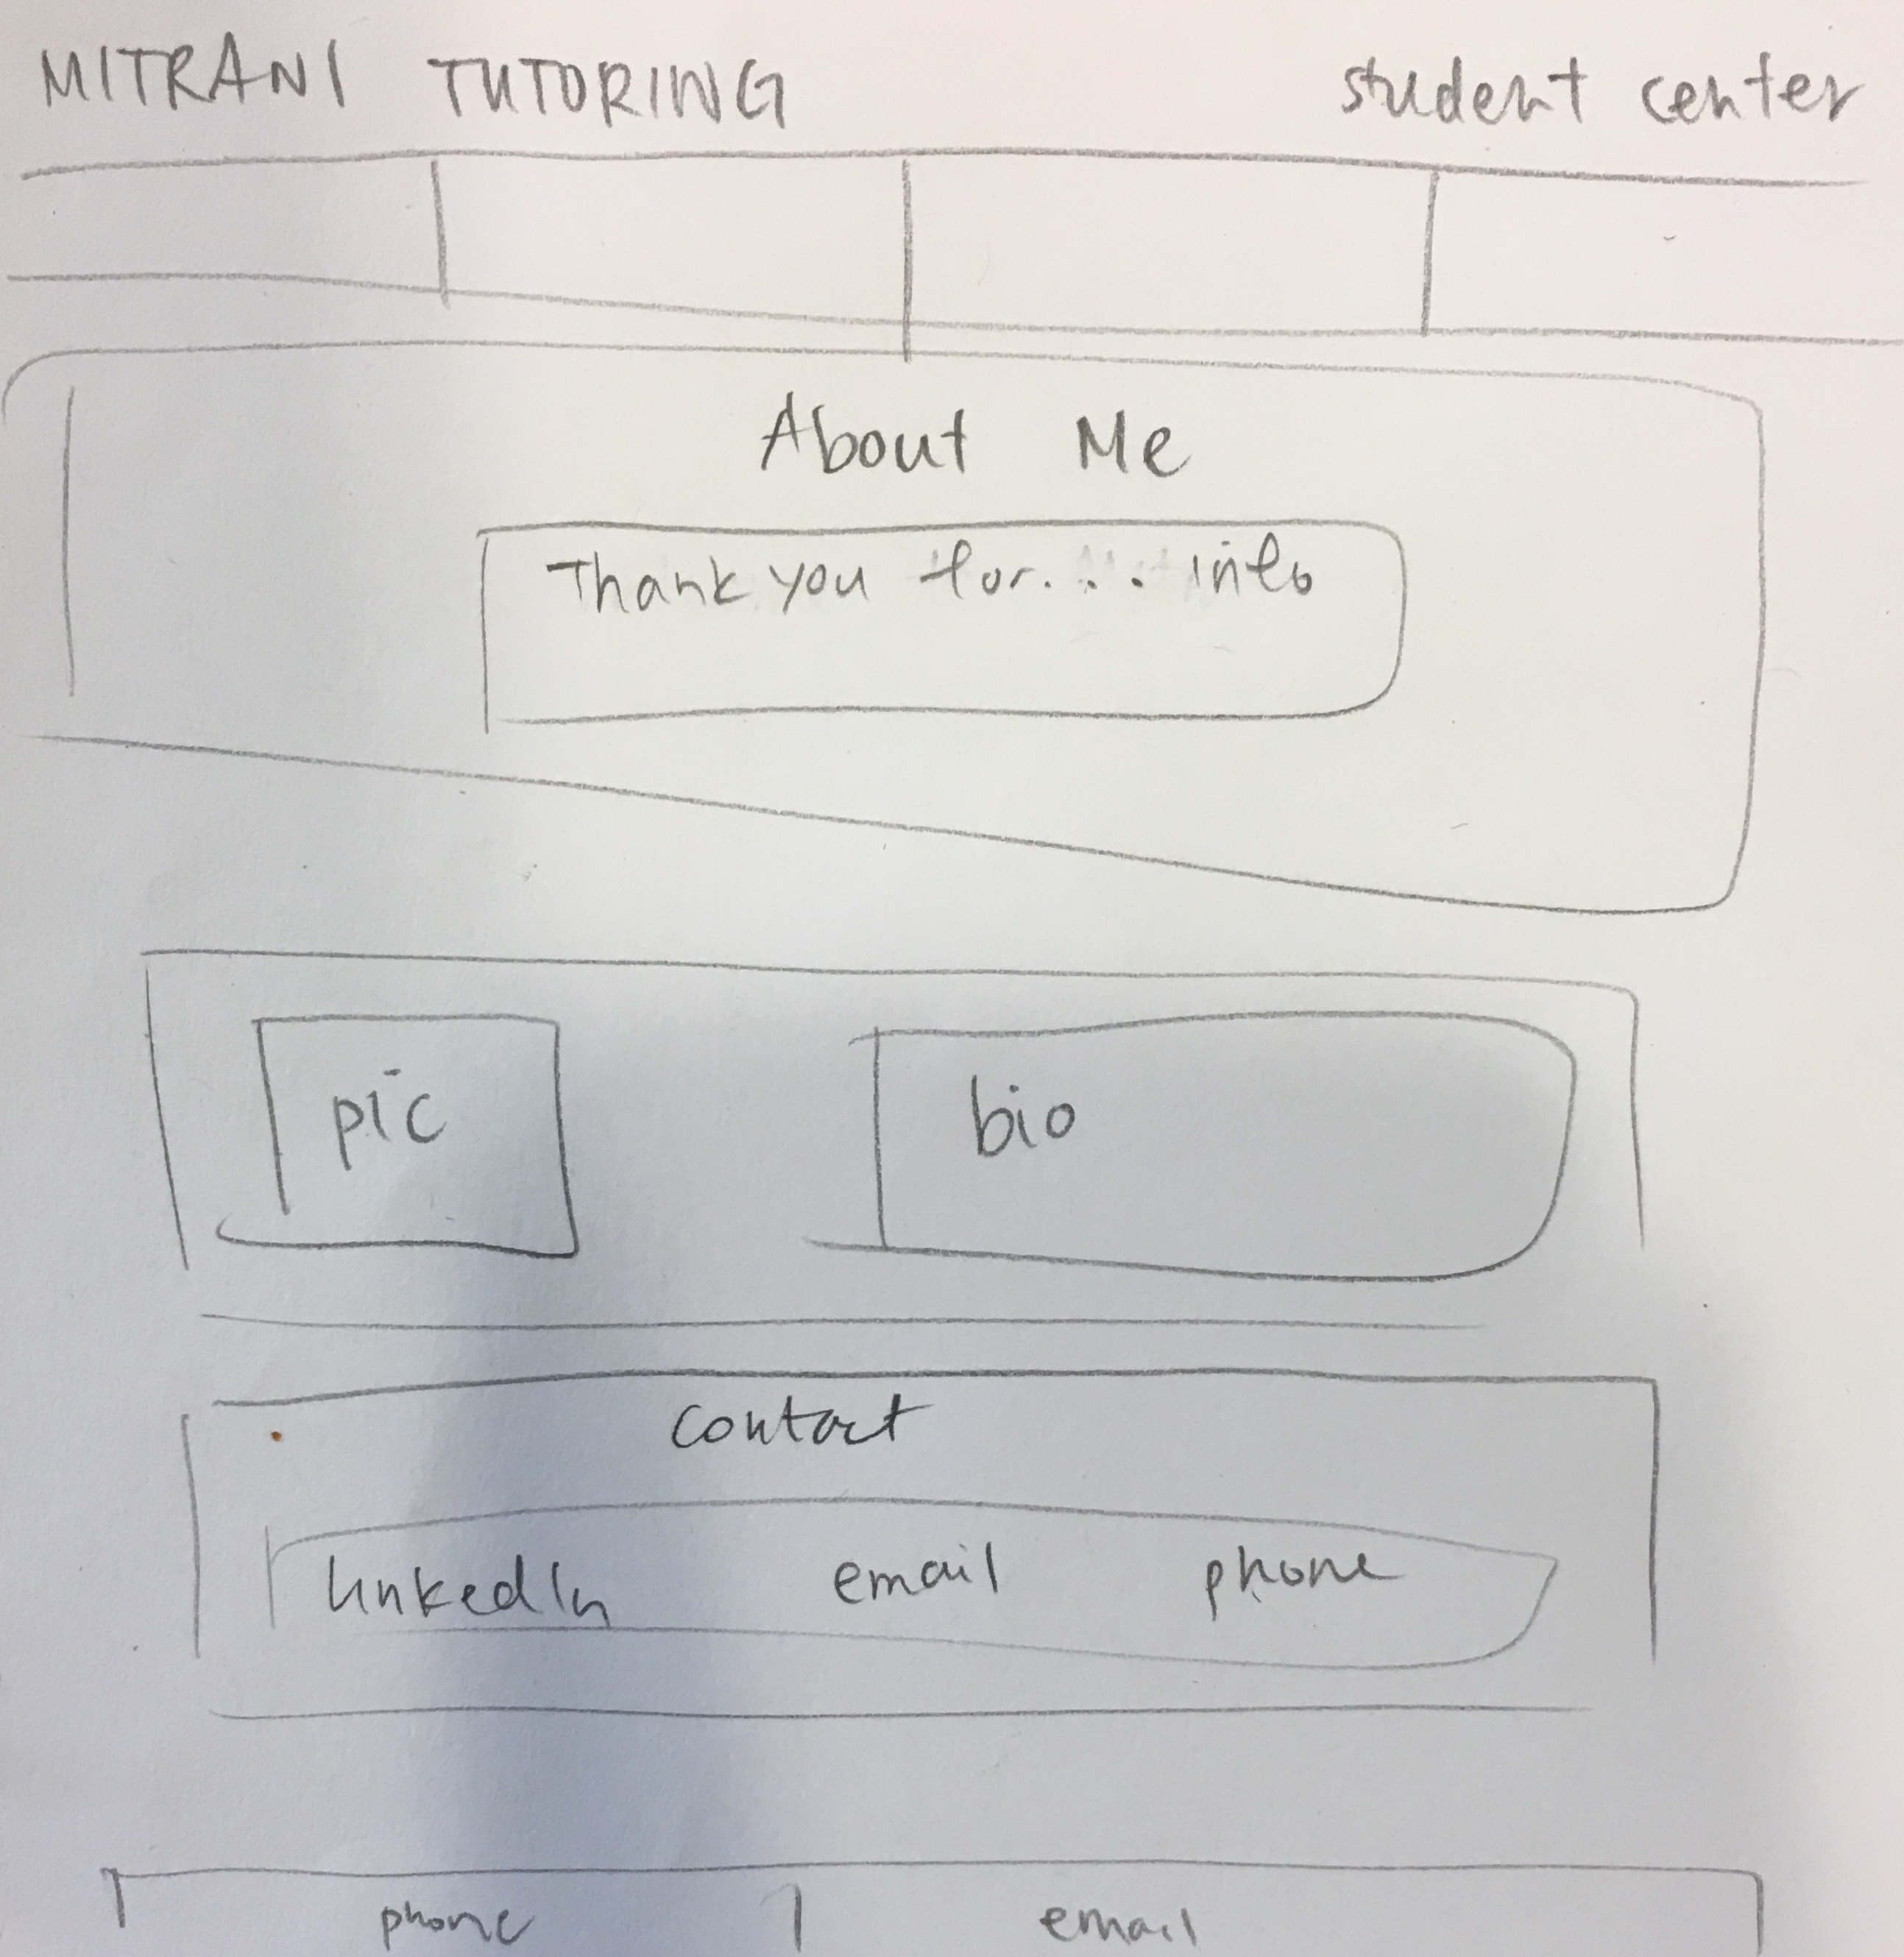 MITRANI TUTORING student center
About Me
Thank you for... info
pic bio
contact
linkedIn email phone
phone email